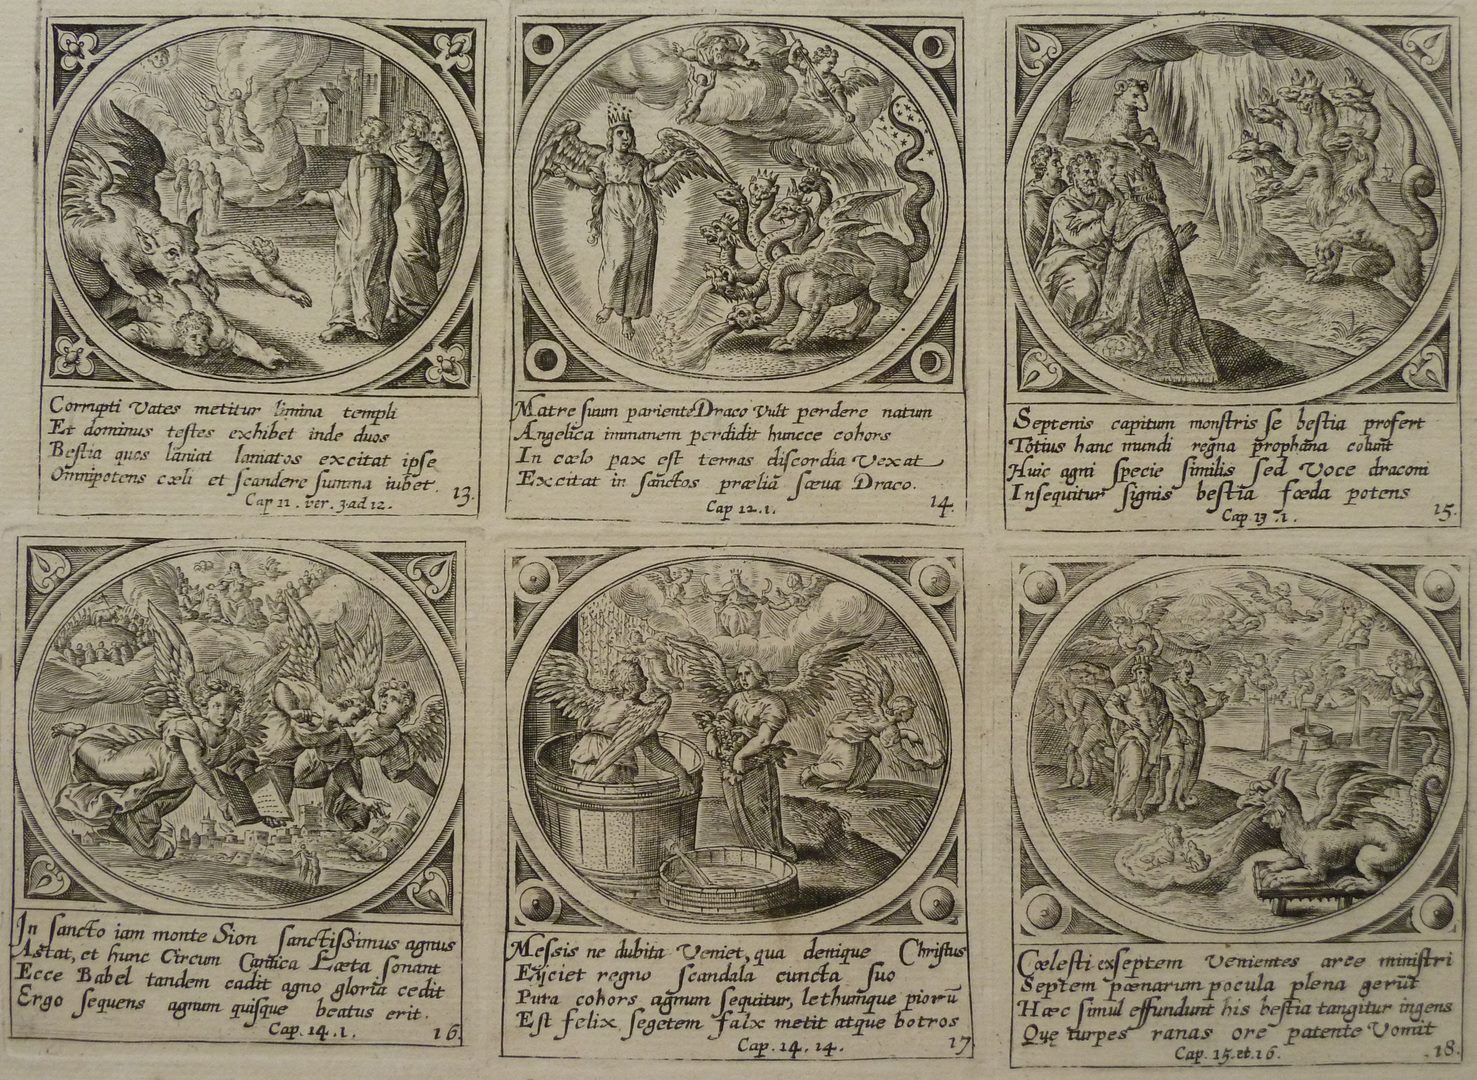 Corrupti Vates metitur limina templi
Et dominus testes exhibet inde duos
Bestia quos laniat laniatos excitat ipse
Omnipotens cœli et scandere summa iubet.
Cap 11. ver. 3. ad 12.
13.
Matre suum pariente Draco Vult perdere natum
Angelica immanem perdidit huncce cohors
In cœlo pax est terras discordia Vexat
Excitat in sanctos prælia sæva Draco.
Cap 12. 1.
14.
Septenis capitum monstris se bestia profert
Totius hanc mundi regna prophana colunt
Huic agni specie similis sed Voce draconi
Insequitur signis bestia fœda potens
Cap 13. 1.
15.
In sancto iam monte Sion sanctissimus agnus
Astat, et hunc Circum Cantica Læta sonant
Ecce Babel tandem cadit agno gloria cedit
Ergo sequens agnum quisque beatus erit.
Cap. 14. 1.
16.
Messis ne dubita Veniet, qua denique Christus
Eijciet regno scandala cuncta suo
Pura cohors agnum sequitur, lethumque piorū
Est felix, segetem falx metit atque botros
Cap. 14. 14.
17.
Cœlesti ex septem venientes arce ministri
Septem pœnarum pocula plena gerūt
Hæc simul effundunt his bestia tangitur ingens
Quę turpes ranas ore patente Vomit
Cap. 15. et. 16.
18.